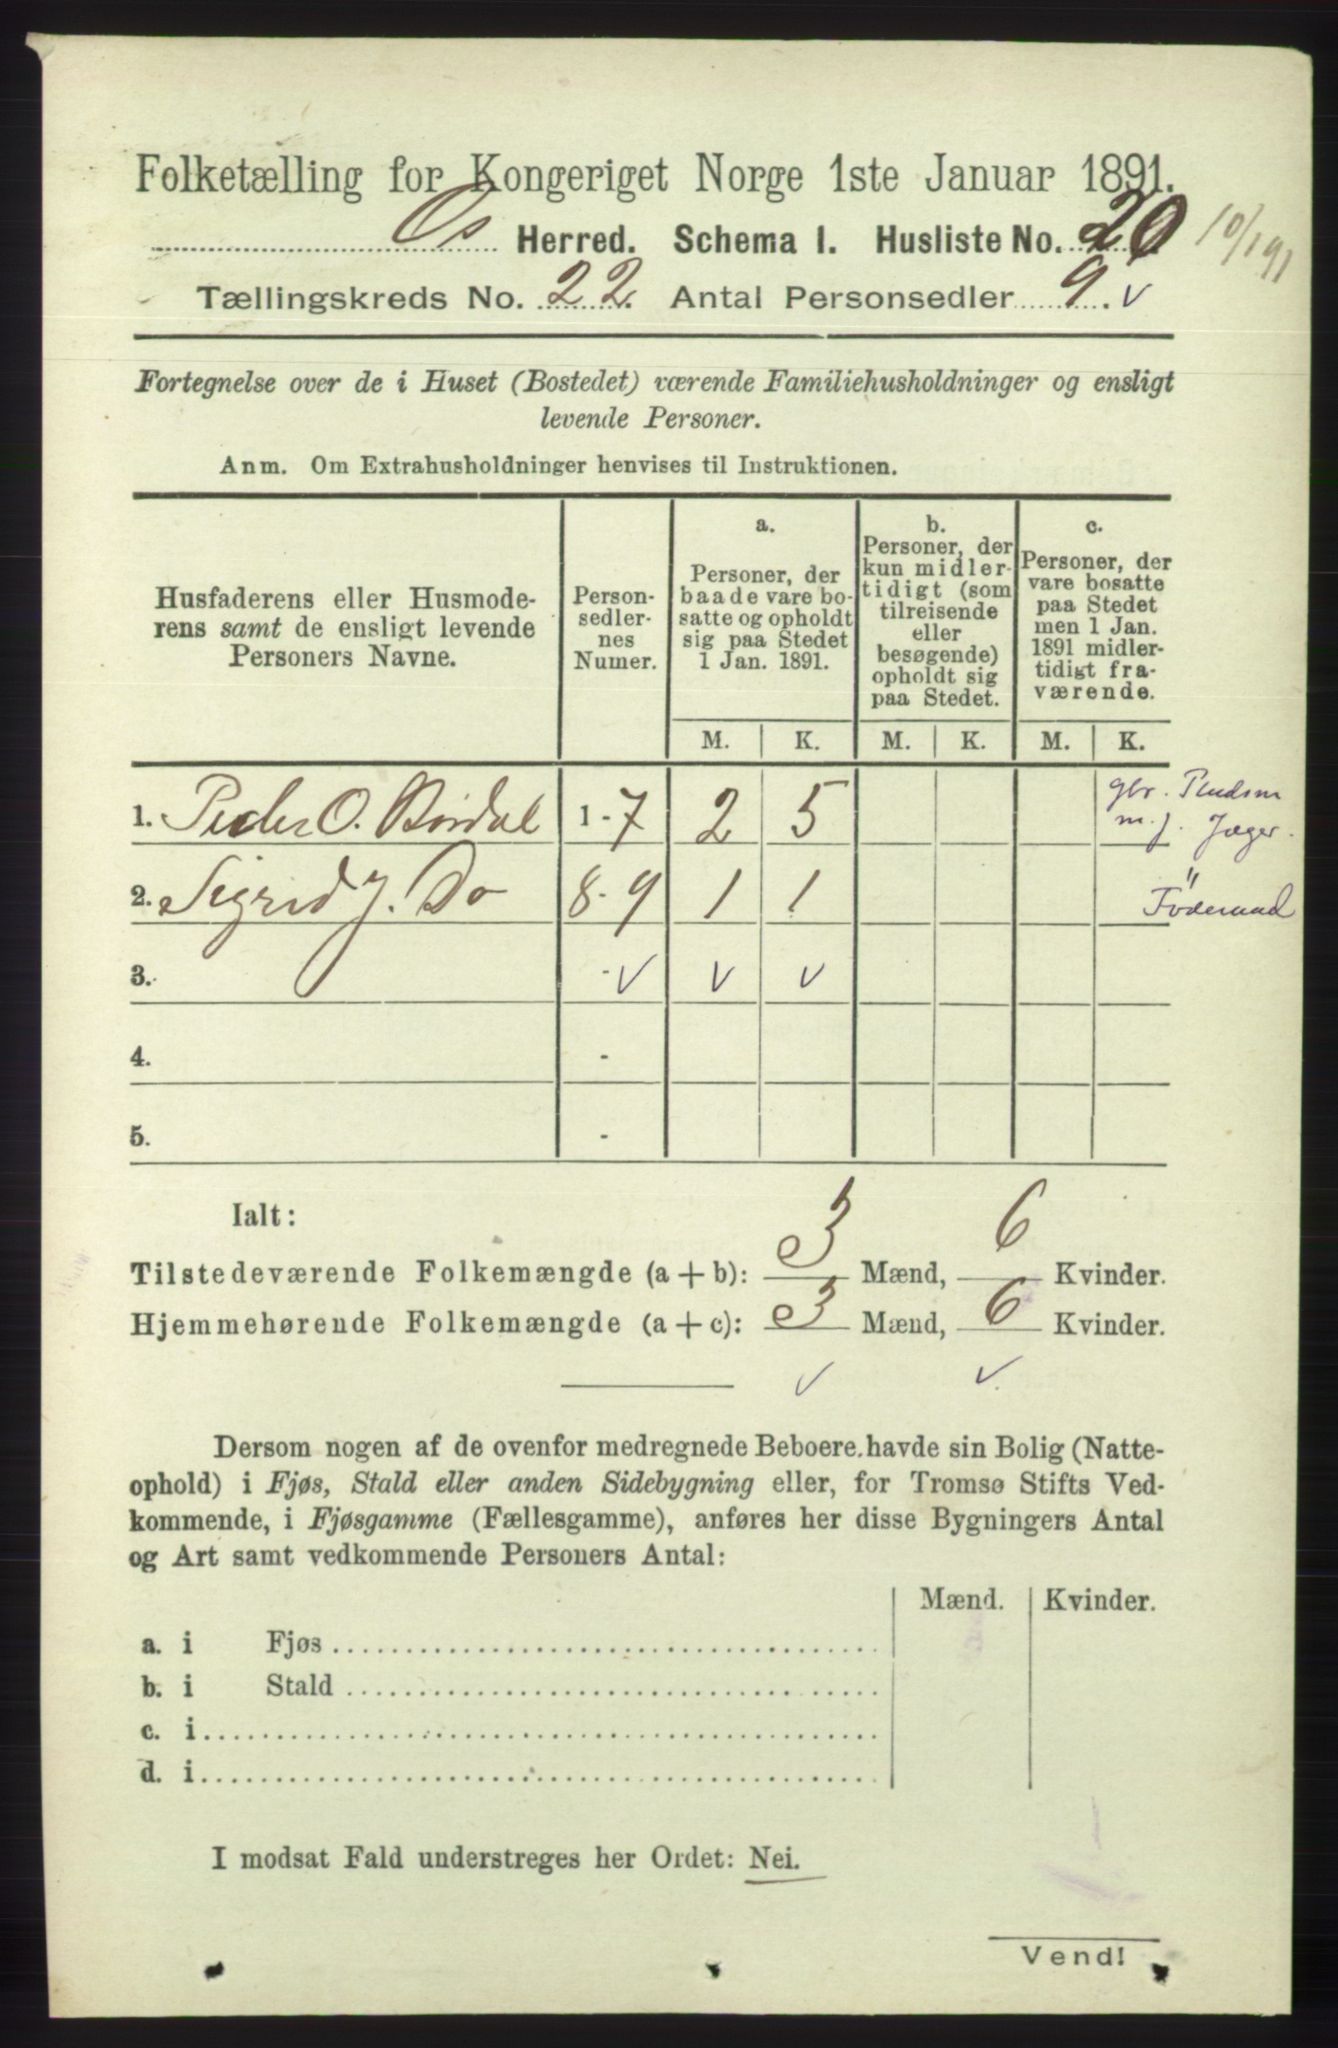 Folketælling for Kongeriget Norge 1ste Januar 1891.
Os Herred. Schema I. Husliste No. 20
10/1 91
Tællingskreds No. 22. Antal Personsedler 9. v
Fortegnelse over de i Huset (Bostedet) værende Familiehusholdninger og ensligt
levende Personer.
Anm. Om Extrahusholdninger henvises til Instruktionen.
Husfaderens eller Husmode-
rens samt de ensligt levende
Personers Navne.
Person-
sedler-
nes
Numer.
a.
Personer, der
baade vare bo-
satte og opholdt
sig paa Stedet
1 Jan. 1891.
b.
Personer, der
kun midler-
tidigt (som
tilreisende
eller
besøgende)
opholdt sig
paa Stedet.
c.
Personer, der
vare bosatte
paa Stedet
men 1 Jan.
1891 midler-
tidigt fra-
værende.
M. K. M. K. M. K.
1. Peder O. 1-7 2 5
m. J. Jæger.
2. Sigrid J. Do 8-9 1 1
3. - v v v
4. -
5. -
Ialt:
Tilstedeværende Folkemængde (a + b): 3 Mænd, 6 Kvinder.
Hjemmehørende Folkemængde (a + c): 3 Mænd, 6 Kvinder.
v v
Dersom nogen af de ovenfor medregnede Beboere havde sin Bolig (Natte-
ophold) i Fjøs, Stald eller anden Sidebygning eller, for Tromsø Stifts Ved-
kommende, i Fjøsgamme (Fællesgamme), anføres her disse Bygningers Antal
og Art samt vedkommende Personers Antal:
Mænd. Kvinder.
a. i Fjøs
b. i Stald
c. i
d. i
I modsat Fald understreges her Ordet: Nei.
Vend!